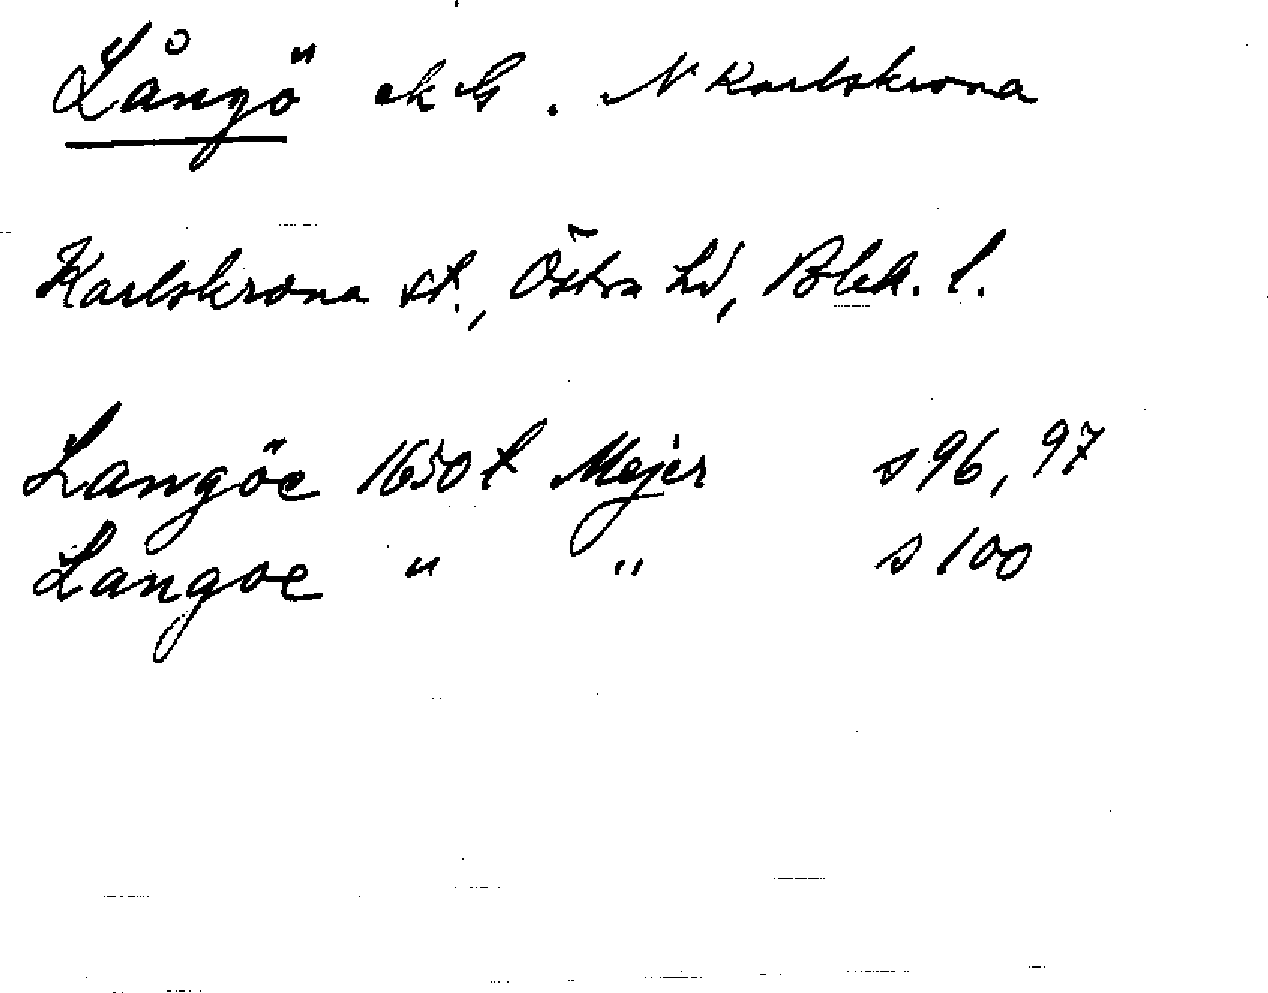 Långö ek G. N Karlskrona
Karlskrona st., Östra hd, Blek. l.
Langöe 1650 t Mejer s 96, 97
Langoe " " s 100